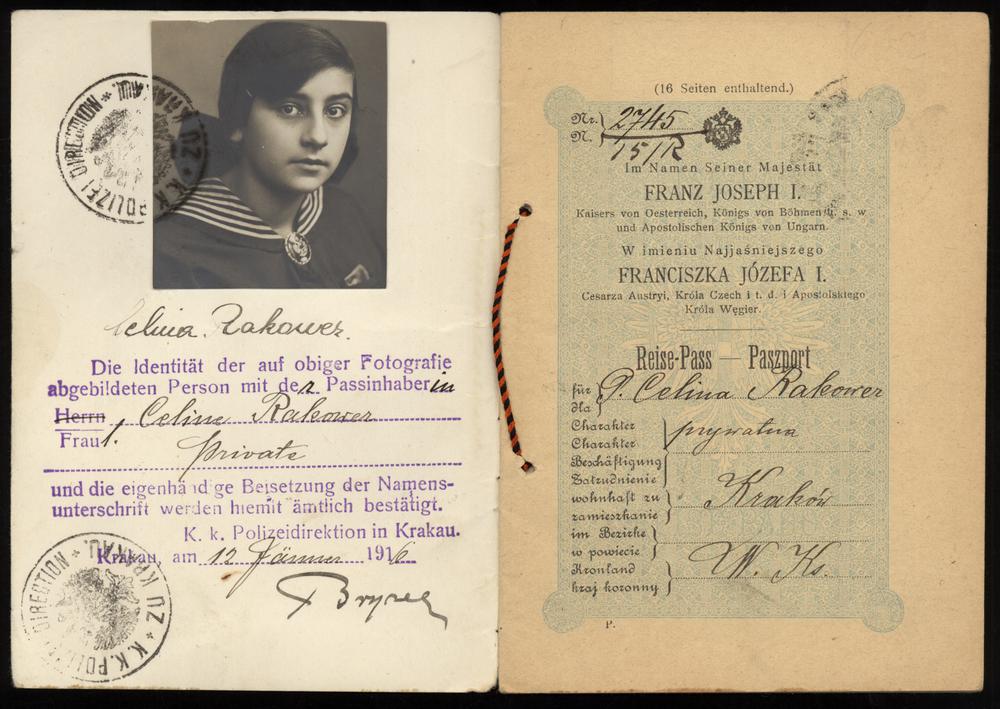 K.K. POLIZEI DIRECTION * ZU KRAKAU. *
Celina Rakower.
Die Identität der auf obiger Fotografie
abgebildeten Person mit der Passinhaberin
Herrn
Frau Celine Rakower
Private
und die eigenhändige Beisetzung der Namens-
unterschrift werden hiemit ämtlich bestätigt.
K. k. Polizeidirektion in Krakau.
Krakau, am 12 Jänner 1916
K.K. POLIZEI DIRECTION * ZU KRAKAU. *
(16 Seiten enthaltend.)
Nr. 2745
N. 15/R
Im Namen Seiner Majestät
FRANZ JOSEPH I.
Kaisers von Oesterreich, Königs von Böhmen u. s. w
und Apostolischen Königs von Ungarn.
W imieniu Najjaśniejszego
FRANCISZKA JÓZEFA I.
Cesarza Austryi, Króla Czech i t. d. i Apostolskiego
Króla Węgier.
Reise-Pass — Paszport
für dla P. Celina Rakower
Charakter
Charakter prywatna
Beschäftigung
Zatrudnienie
wohnhaft zu Kraków
zamieszkanie
im Bezirke
w powiecie
Kronland W. Ks.
kraj koronny
P.